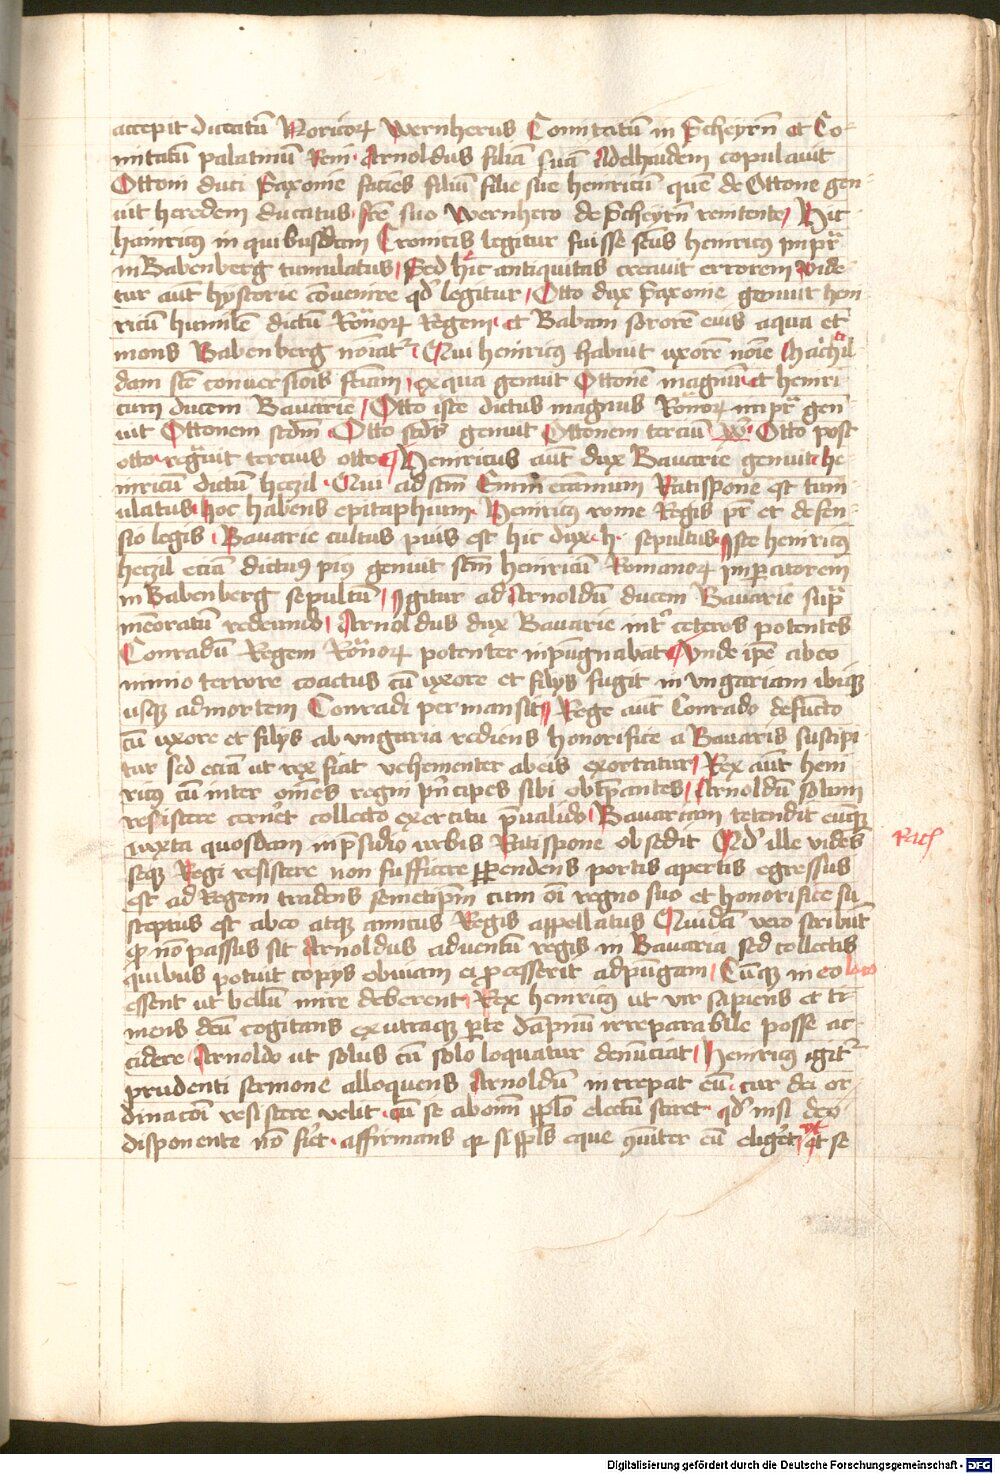 accepit ducatū Noricoꝝ Wernherus Comitatū in Scheyrn̄ et Co-
mitatū palatinū Reni · Arnoldus filiā suā Adelhaidem copulauit
Ottoni duci Saxonie faciēs filiū filie sue heinricū quē de Ottone gen-
uit heredem ducatus · fr̄e suo Wernhero de Scheyrn̄ renitente / Hic
hainricꝰ in quibusdam Cronicis legitur fuisse sc̄us heinricꝰ impr̄
in Babenberg tumulatus / Sed hic antiquitas creauit errorem vide
tur aut̄ hystorie cōuenire qd̓ legitur / Otto dux Saxonie genuit hein
ricū humilē dictū Romoꝝ Regem · et Babam sororē eius a qua et
mons Babenberg noīatr · Qui heinricꝰ habuit vxorē noīe Mächil
dam sc̄e conuersiōis fēiam / ex qua genuit Ottonē magnū · et heinri
cum ducem Bauarie / Otto iste dictus magnus Romoꝝ impr̄ gen
uit Ottonem scdm̄ · Otto scds̄ genuit Ottonem terciū W · Otto post
otto · regnauit tercius otto · Heinricus aut̄ dux Bauarie genuit he
inricū dictū heczil · Qui ad sc̄m Emmeramum Ratispone est tum
ulatus · hoc habens epitaphum · Heinricꝰ rome Regis pr̄ et defen-
sio legis · Bauarie cultus piūs est hic dux · h · sepultus · Iste heinricꝰ
heczil eciā dictus piꝰ genuit sc̄m heinricū Romanoꝝ Imꝑatorem
in Babenberg sepultū / Igitur ad Arnoldū ducem Bauarie supr̄
memoratū redeundo / Arnoldus dux Bauarie int̓ ceteros potentes
Conradū Regem Romoꝝ potenter inpugnabat · Vnde ip̄e ab eo
nimio terrore coactus cū vxore et filijs fugit in vngariam ibiqꝫ
usqꝫ ad mortem Conradi permansit / Rege aut̄ Conrado defūcto
cū vxore et filijs ab vngaria rediens honorifice a Bauaris suscipi
tur sed eciā ut rex fiat vehementer ab eis exortatur / Rex aut̄ hein
ricꝰ cū inter om̄es regni p̄ncipes sibi obtp̄antes / Arnoldū solum
resistere cern̓et collecto exercitu p̄ualido / Bauariam tetendit eumqꝫ
iuxta quosdam in p̄sidio vrbis Ratispone obsedit Qd̓ ille vidēs
Rach
seqꝫ Regi resistere non sufficere ꝑpendens portis apertis egressus
est ad Regem tradens semetip̄m cum oī regno suo et honorifice su
sceptus est ab eo atqꝫ amicus Regis appellatus Quidā vero scribūt
ꝙ nō passus sit Arnoldus aduentū regis in Bauaria sed collectis
quibus potuit copijs obuiam ei ꝓcesserit ad pugnam / Cūqꝫ in eo loco
essent ut bellū inire deberent / Rex heinricꝰ ut vir sapiens et ti
mens deū cogitans ex utraqꝫ ꝑte dāpnū irreparabile posse ac-
cidere Arnoldo ut solus cū solo loquatur denūciat / Heinricꝰ igit̓
prudenti sermone alloquens Arnoldū increpat eū · cur dei or
dinacoī resistere velit · cū se ab om̄i pp̄lo electū sciret · qd̓ nisi deo
disponente nō fi̓et · affirmans ꝙ si pp̄ls eque gn̄iter eū elig̓et / ut se